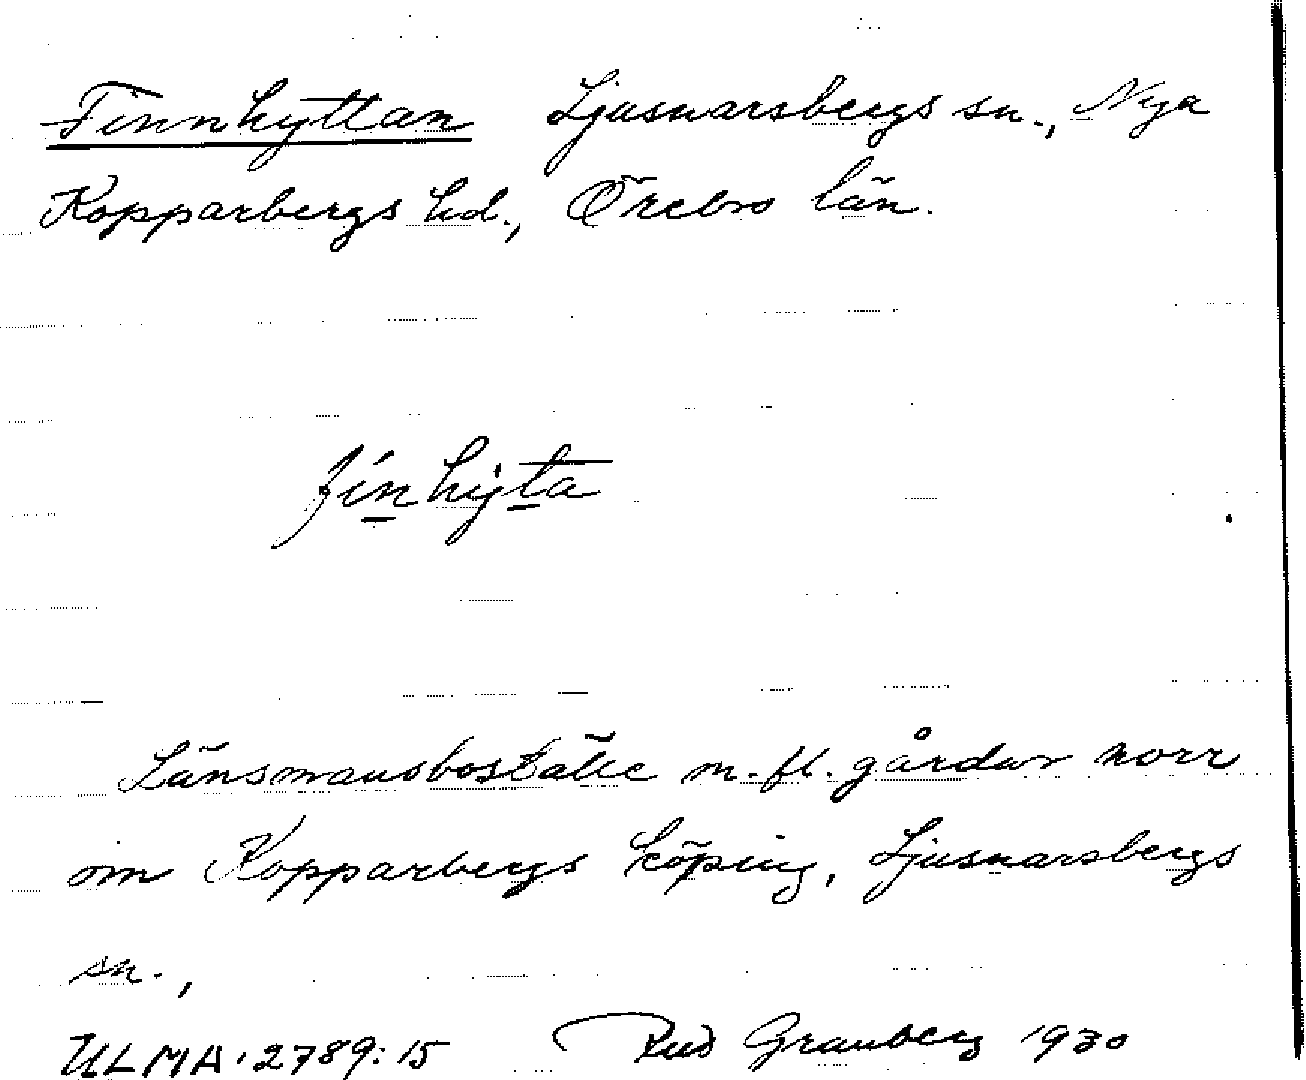 Finnhyttan Ljusnarsbergs sn., Nya
Kopparbergs hd., Örebro län.
finhyta
Länsmansboställe m.fl. gårdar norr
om Kopparbergs köping, Ljusnarsbergs
sn.,
ULMA 2789:15 Rud Granberg 1930